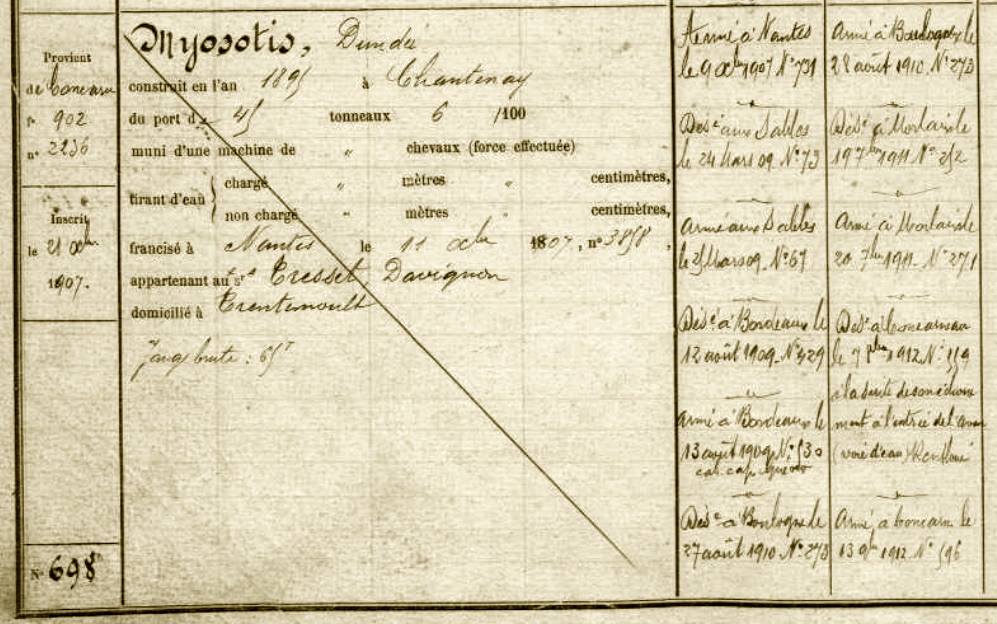 Provient
de Concarneau
f° 902
n° 2236
Inscrit
le 21 oct
1907.
N° 698
Myosotis, Dundé
construit en l'an 1895 à Chantenay
du port de 45 tonneaux 6 /100
muni d'une machine de " chevaux (force effectuée)
tirant d'eau
chargé " mètres " centimètres,
non chargé " mètres " centimètres,
francisé à Nantes le 11 octbre 1907, n° 3858,
appartenant au Srs Tresset, Davignon
domicilié à Trentemoult
Jauge brute : 65T
Armé à Nantes
le 9 Xbre 1907 N° 731
Desé aux Sables
le 24 Mars 09 N° 73
Armé aux Sables
le 25 Mars 09 N° 67
Desé à Bordeaux le
12 août 1909 N° 429
Armé à Bordeaux le
13 août 1909 N° 530
cab. cap.
Desé à Boulogne le
27 août 1910 N° 273
Armé à Boulogne le
28 août 1910 N° 273
Desé à Morlaix le
19 7bre 1911 N° 252
Armé à Morlaix le
20 7bre 1911 N° 271
Desé à Concarneau
le 7 1912 N° 559
à la suite de son échoue
ment à l'entrée de l'
(voie d'eau) Renfloué
Armé à Concarn le
13 9bre 1912 N° 596